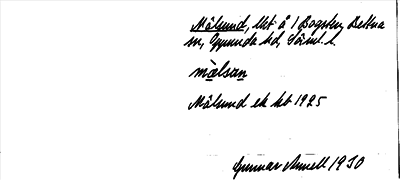 Målsund, lht å 1 Bogsten, Bettna
sn, Oppunda hd, Söml. l.
målsan
Målsund ek kt 1925
Gunnar Annell 1930